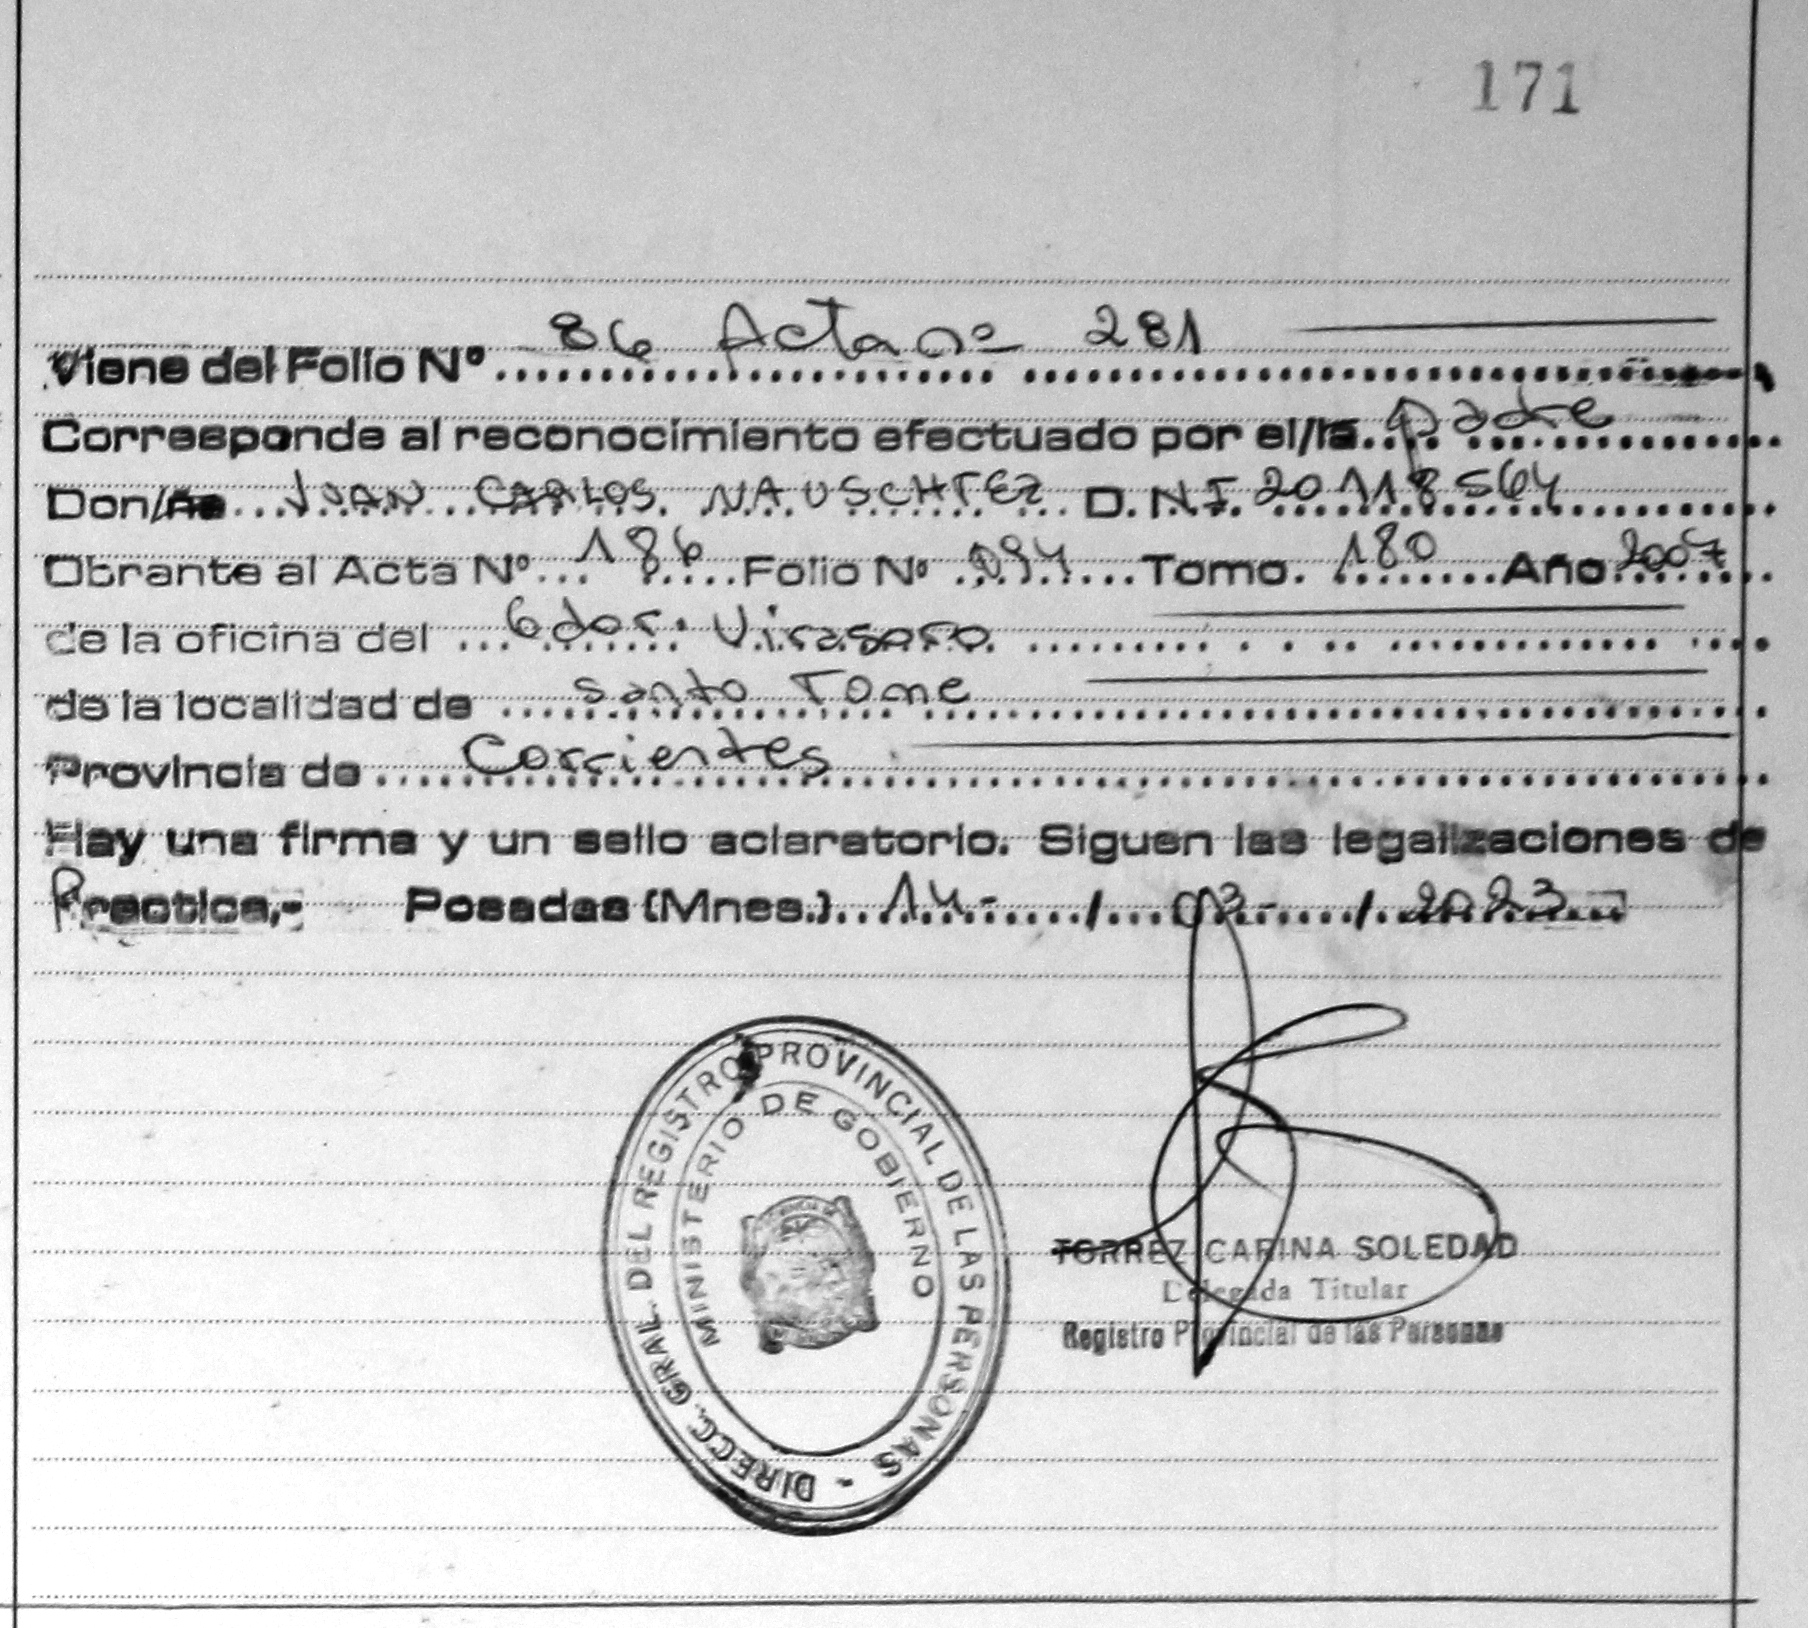 171
Viene del Folio Nº 86 Acta nº 281
Corresponde al reconocimiento efectuado por el/la padre
Don/ña JUAN CARLOS NAUSCHTEZ D.N.I 20118564
Obrante al Acta Nº 186 Folio Nº 094 Tomo. 180 Año 2007
de la oficina del Gdor. Virasoro
de la localidad de Santo Tome
Provincia de Corrientes
Hay una firma y un sello aclaratorio. Siguen las legalizaciones de
Practica,- Posadas (Mnes.) 14- / 03- / 2023
DIRECC. GRAL. DEL REGISTRO PROVINCIAL DE LAS PERSONAS -
MINISTERIO DE GOBIERNO
TORREZ CARINA SOLEDAD
Delegada Titular
Registro Provincial de las Personas